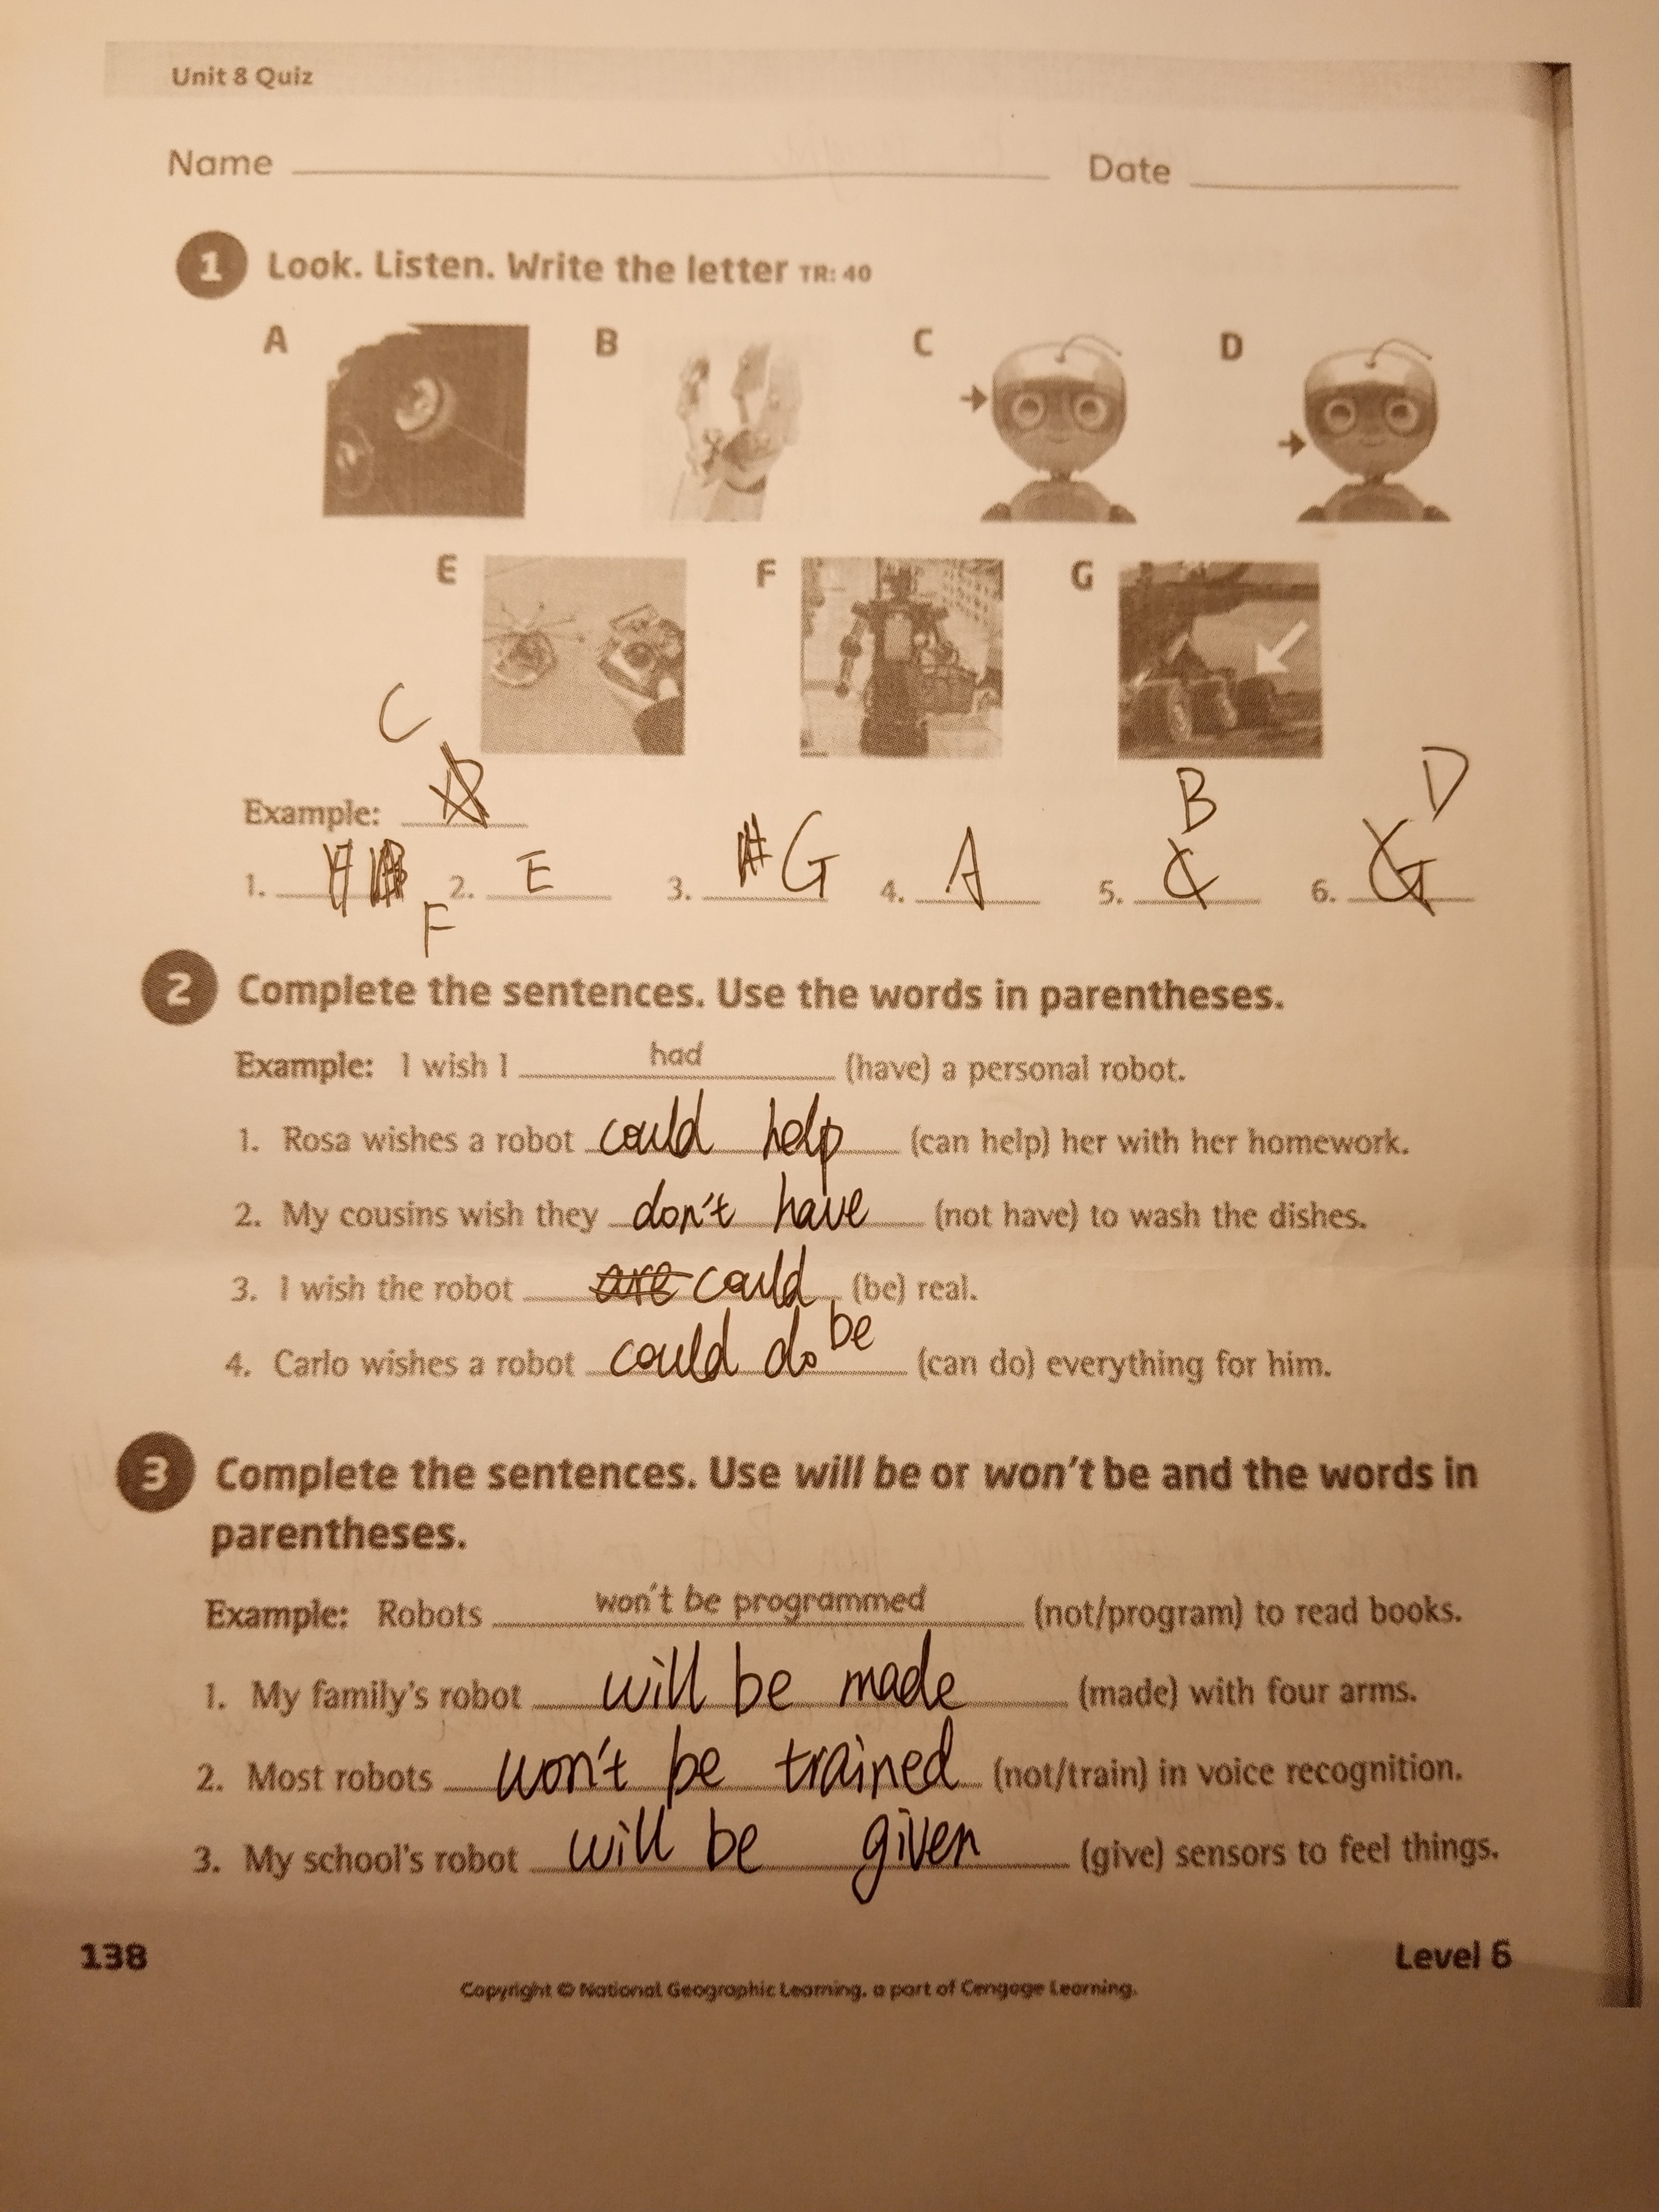 Unit 8 Quiz
Name Date
1 Look. Listen. Write the letter TR: 40
A B C D
E F G
C
Example:
B D
1. 2. E 3. G 4. A 5. C 6. G
F
2 Complete the sentences. Use the words in parentheses.
Example: I wish I had (have) a personal robot.
1. Rosa wishes a robot could help (can help) her with her homework.
2. My cousins wish they don't have (not have) to wash the dishes.
3. I wish the robot are could be (be) real.
4. Carlo wishes a robot could do (can do) everything for him.
3 Complete the sentences. Use will be or won't be and the words in
parentheses.
Example: Robots won't be programmed (not/program) to read books.
1. My family's robot will be made (made) with four arms.
2. Most robots won't be trained (not/train) in voice recognition.
3. My school's robot will be given (give) sensors to feel things.
138 Level 6
Copyright © National Geographic Learning, a part of Cengage Learning.